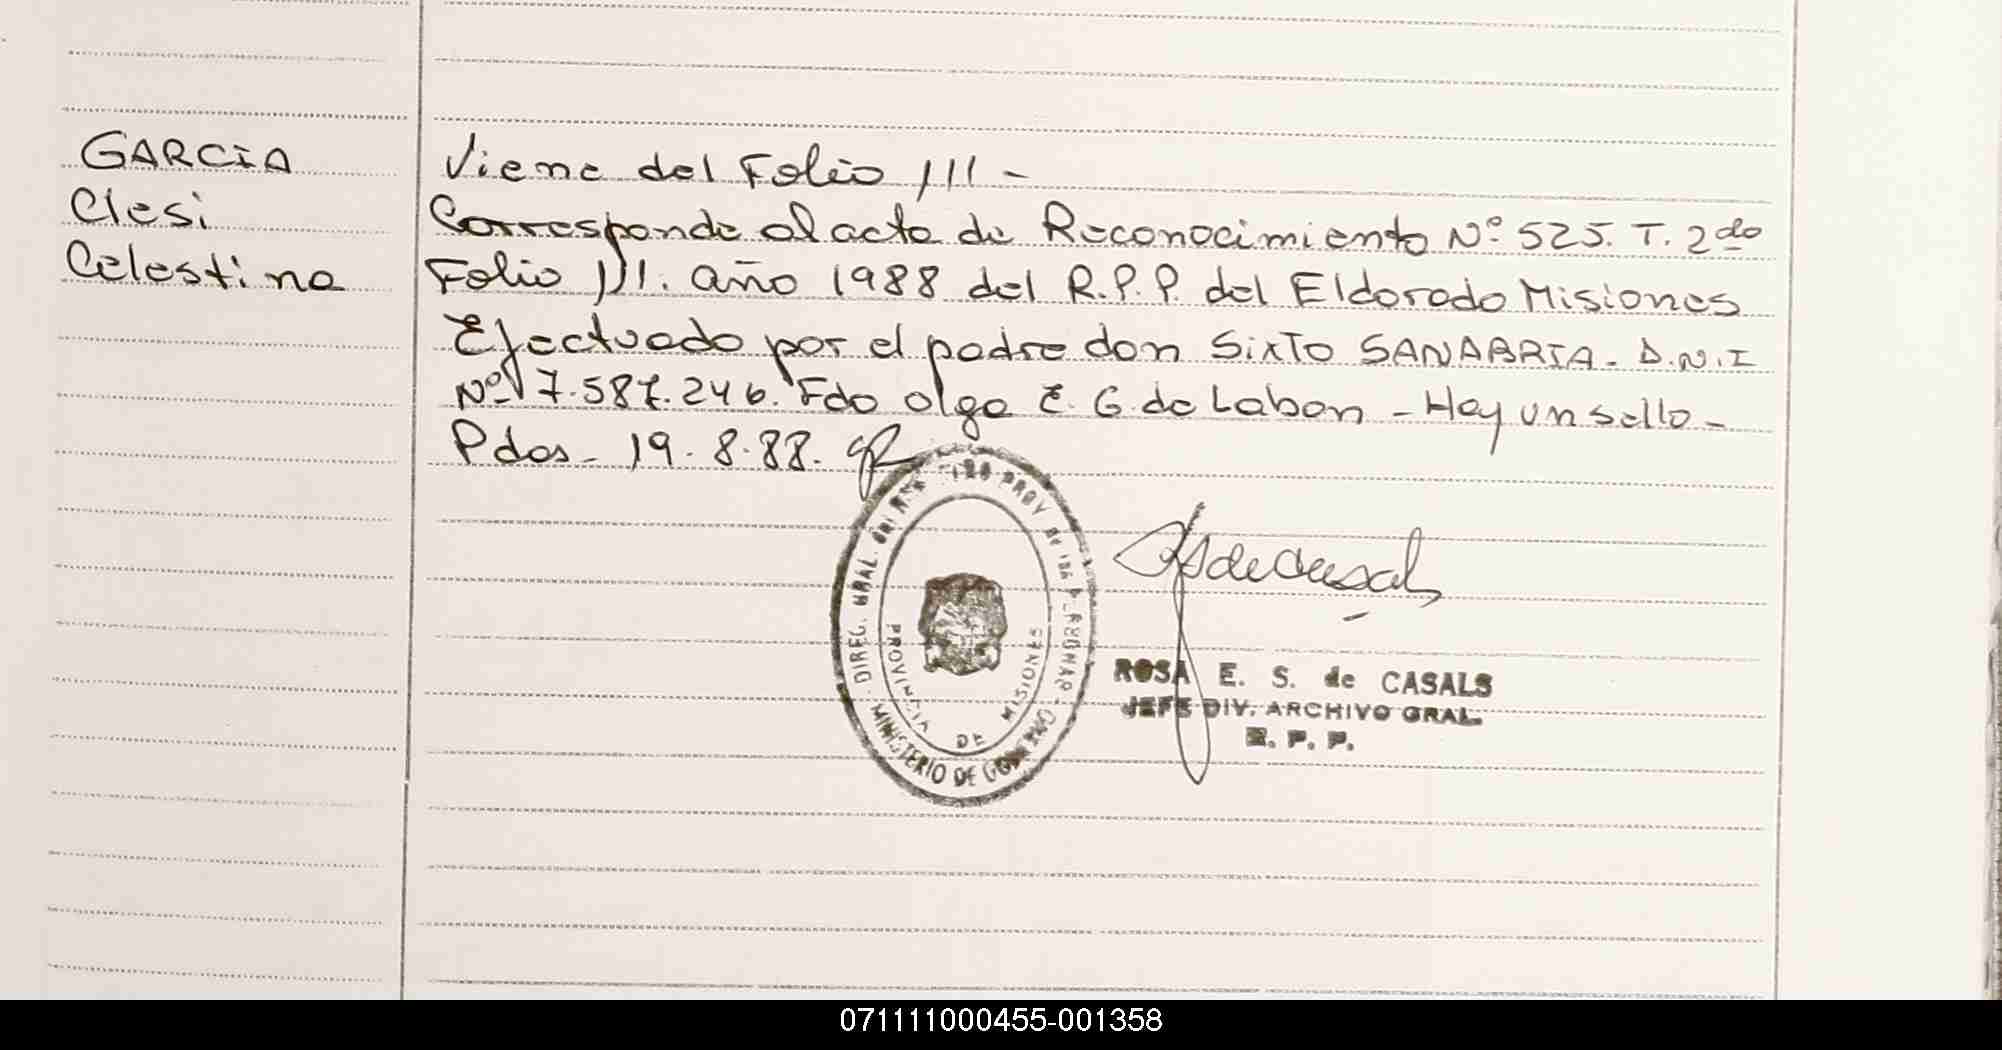 GARCIA
Clesi
Celestina
Viene del Folio 111 -
Corresponde al acta de Reconocimiento Nº 525. T. 2do
Folio 111. año 1988 del R.P.P. del Eldorado Misiones
Efectuado por el padre don Sixto SANABRIA. D.N.I
Nº 7.587.246. Fdo Olga E. G. de Labon - Hay un sello -
Pdas - 19.8.88.
DIREG. GRAL. del PROV de las PERSONAS
MINISTERIO DE
PROVINCIA DE MISIONES
ROSA E. S. de CASALS
JEFE DIV. ARCHIVO GRAL.
R. P. P.
071111000455-001358